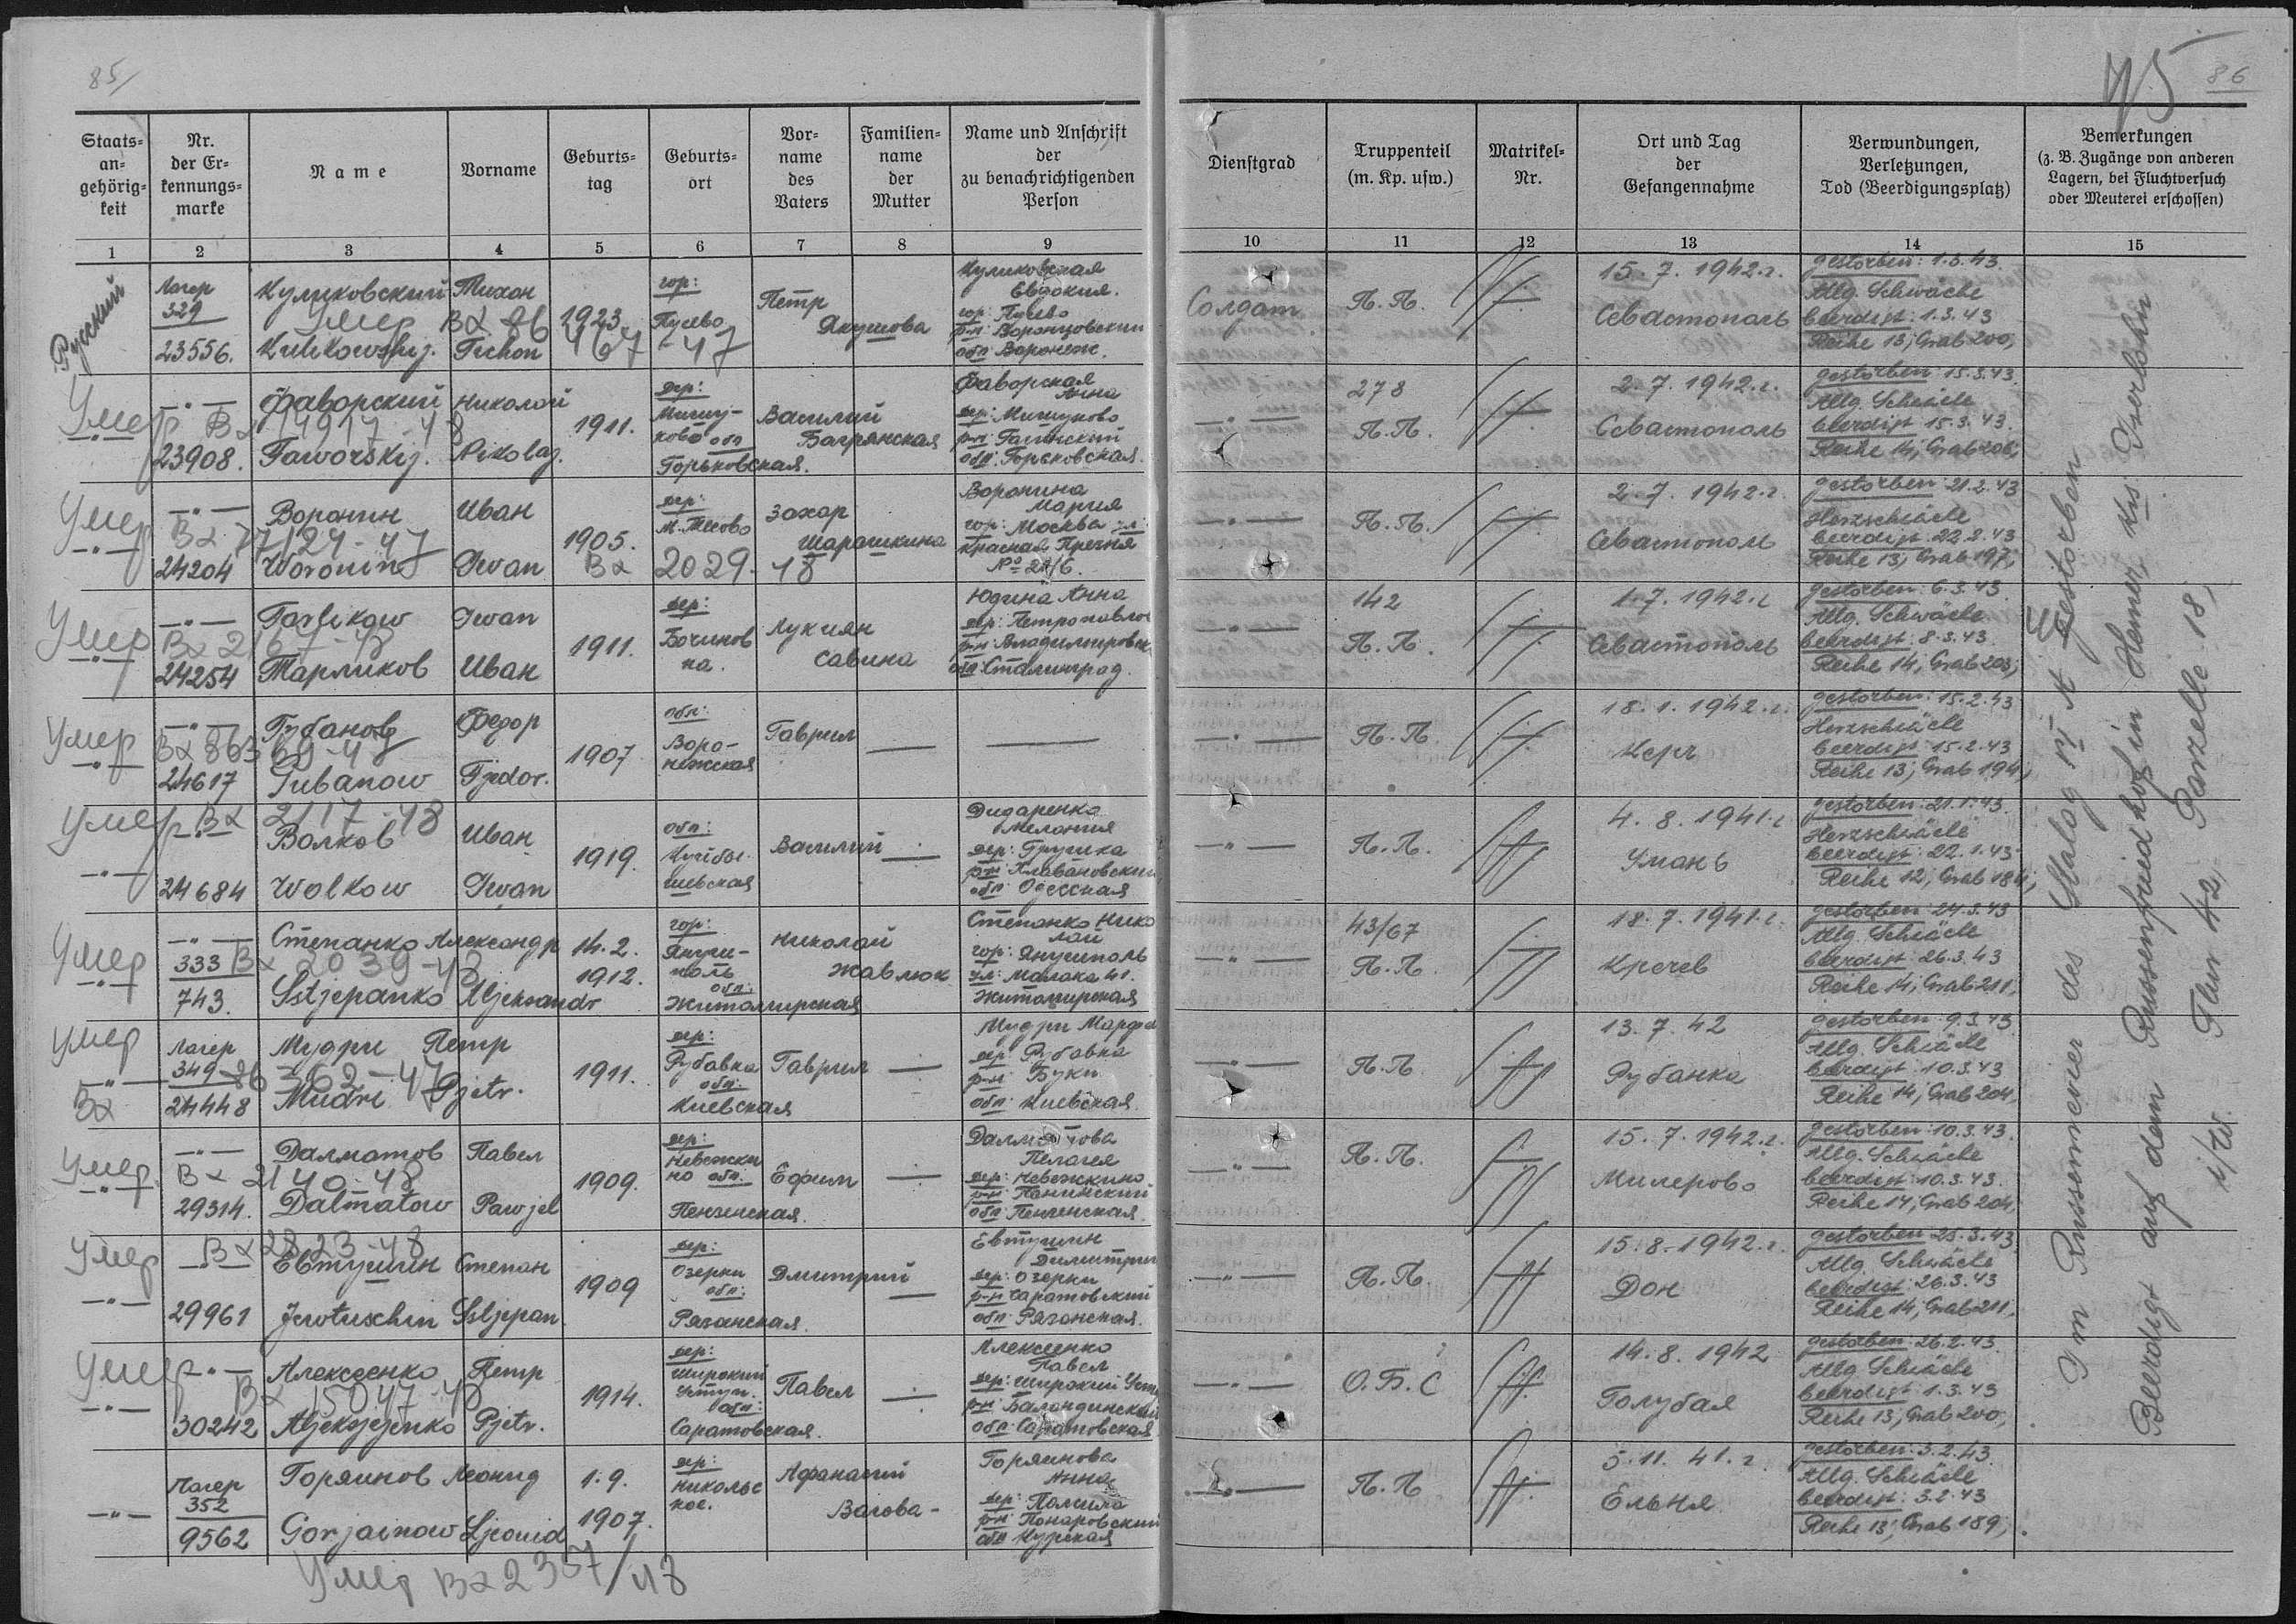 85/
Staats-
an-
gehörig-
keit
Nr.
der Er-
kennungs-
marke
Name
Vorname
Geburts-
tag
Geburts-
ort
Vor-
name
des
Vaters
Familien-
name
der
Mutter
Name und Anschrift
der
zu benachrichtigenden
Person
1 2 3 4 5 6 7 8 9
Русский
Лагер
329
23556.
Куликовский Тихон
Умер Вх 86467-47
Kulikowskij. Tichon
1923
гор:
Пусево
Петр
Якушова
Куликовская
Евдокия.
гор: Пусево
р-н: Воронцовский
обл: Воронеж.
Умер Вх 14917-48
23908.
Фаворский Николай
Faworskij. Nikolaj.
1911.
дер:
Мишу-
ково обл
Горьковская.
Василий
Багрянская
Фаворская
Анна
дер: Мишуково
р-н: Гагинский
обл: Горьковская
Умер Вх 77124-47
24204
Воронин Иван
Woronin Iwan
1905.
Вх 2029-48
дер:
М. Тесово
Захар
Шарашкина
Воронина
Мария
гор: Москва ул:
Красная Пресня
№ 24/6.
Умер Вх 2167-48
24254
Tarlikow Iwan
Тарликов Иван
1911.
дер:
Бочинов
ка.
Лукиян
Савина
Юдина Анна
дер: Петропавлов
р-н: Владимировск
обл: Сталинград.
Умер Вх 86369-48
24617
Губанов Федор
Gubanow Fjedor.
1907
обл:
Воро-
нежская
Гаврил
Умер Вх 2117-48
24684
Волков Иван
Wolkow Iwan
1919.
обл:
Куйбы-
шевская
Василий
Дидаренко
Мелания
дер: Грушка
обл: Одесская
Умер
333 Вх 2039-48
743.
Степанко Александр
Sstjepanko Aljeksandr
14.2.
1912.
гор:
Януши-
поль
обл:
Житомирская
Николай
Жавлюк
Степанко Нико
лай
гор: Янушполь
ул: Малака 41.
Житомирская
Умер
Лагер
349
Вх 86362-47
24448
Мудри Петр
Mudri Pjetr.
1911.
дер:
Рубавка
обл:
Киевская
Гаврил
Мудри Марфа
дер: Рубавка
р-н: Буки
обл: Киевская
Умер. Вх 2140-48
29314.
Далматов Павел
Dalmatow Pawjel
1909.
дер:
Невежки
но обл.
Пензенская.
Ефим
Далматова
Пелагея
дер: Невежкино
р-н: Панинский
обл: Пензенская.
Умер Вх 2823-48
29961
Евтушин Степан
Jewtuschin Sstjepan
1909
дер:
Озерки
обл:
Рязанская.
Дмитрий
Евтушин
Димитрий
дер: Озерки
р-н Сараtовский
обл: Рязанская.
Умер Вх 15047-48
30242
Алексеенко Петр
Aljeksjejenko Pjetr.
1914.
дер:
Широкий
Уступ.
обл:
Саратовская.
Павел
Алексеенко
Павел
дер: Широкий Уст
р-н: Баландинский
обл: Саратовская
Лагер
352
9562
Горяинов Леонид
Gorjainow Ljeonid
1.9.
1907.
дер:
Никольс
кое.
Афанасий
Вагова-
Горяинова
Анна
дер: Польшо
р-н: Понаровский
обл: Курская
Умер Вх 2357/48
45
86
Dienstgrad
Truppenteil
(m. Kp. usw.)
Matrikel-
Nr.
Ort und Tag
der
Gefangennahme
Verwundungen,
Verletzungen,
Tod (Beerdigungsplatz)
Bemerkungen
(z. B. Zugänge von anderen
Lagern, bei Fluchtversuch
oder Meuterei erschossen)
10 11 12 13 14 15
Солдат
П. П.
15. 7. 1942.г.
Севастополь
gestorben: 1.3.43.
Allg. Schwäche
beerdigt: 1.3.43
Reihe 13, Grab 200,
278
П. П.
2. 7. 1942.г.
Севастополь
gestorben: 15.3.43.
Allg. Schwäche
beerdigt 15.3.43.
Reihe 14, Grab 206,
П. П.
2. 7. 1942.г.
Севастополь
gestorben 21.2.43
Herzschwäche
beerdigt 22.2.43
Reihe 13, Grab 197,
142
П. П.
1. 7. 1942.г
Севастополь
gestorben: 6.3.43.
Allg. Schwäche
beerdigt: 8.3.43.
Reihe 14, Grab 203,
П. П.
18. 1. 1942.г.
Керч
gestorben: 15.2.43
Herzschwäche
beerdigt: 15.2.43
Reihe 13, Grab 194,
П. П.
4. 8. 1941.г
Умань
gestorben: 21.1.43.
Herzschwäche
beerdigt: 22.1.43
Reihe 12, Grab 184,
43/67
П. П.
18. 7. 1941.г.
Кречев
gestorben: 24.3.43
Allg. Schwäche
beerdigt: 26.3.43
Reihe 14, Grab 211,
П. П.
13. 7. 42
Рубанка
gestorben: 9.3.43.
Allg. Schwäche
beerdigt: 10.3.43
Reihe 14, Grab 204,
П. П.
15. 7. 1942.г.
Милерово
gestorben: 10.3.43.
Allg. Schwäche
beerdigt: 10.3.43.
Reihe 14, Grab 204.
П. П.
15. 8. 1942.г.
Дон
gestorben 25.3.43.
Allg. Schwäche
beerdigt: 26.3.43
Reihe 14, Grab 211,
О. Б. С
14. 8. 1942
Голубая
gestorben: 26.2.43.
Allg. Schwäche
beerdigt: 1.3.43
Reihe 13, Grab 200,
П. П
5. 11. 41.г.
Ельня
gestorben: 3.2.43.
Allg. Schwäche
beerdigt: 3.2.43
Reihe 13, Grab 189,
Im Russenrevier des Stalag VI A gestorben
Beerdigt auf dem Russenfriedhof in Hemer, Krs. Iserlohn
Flur 42, Parzelle 18,